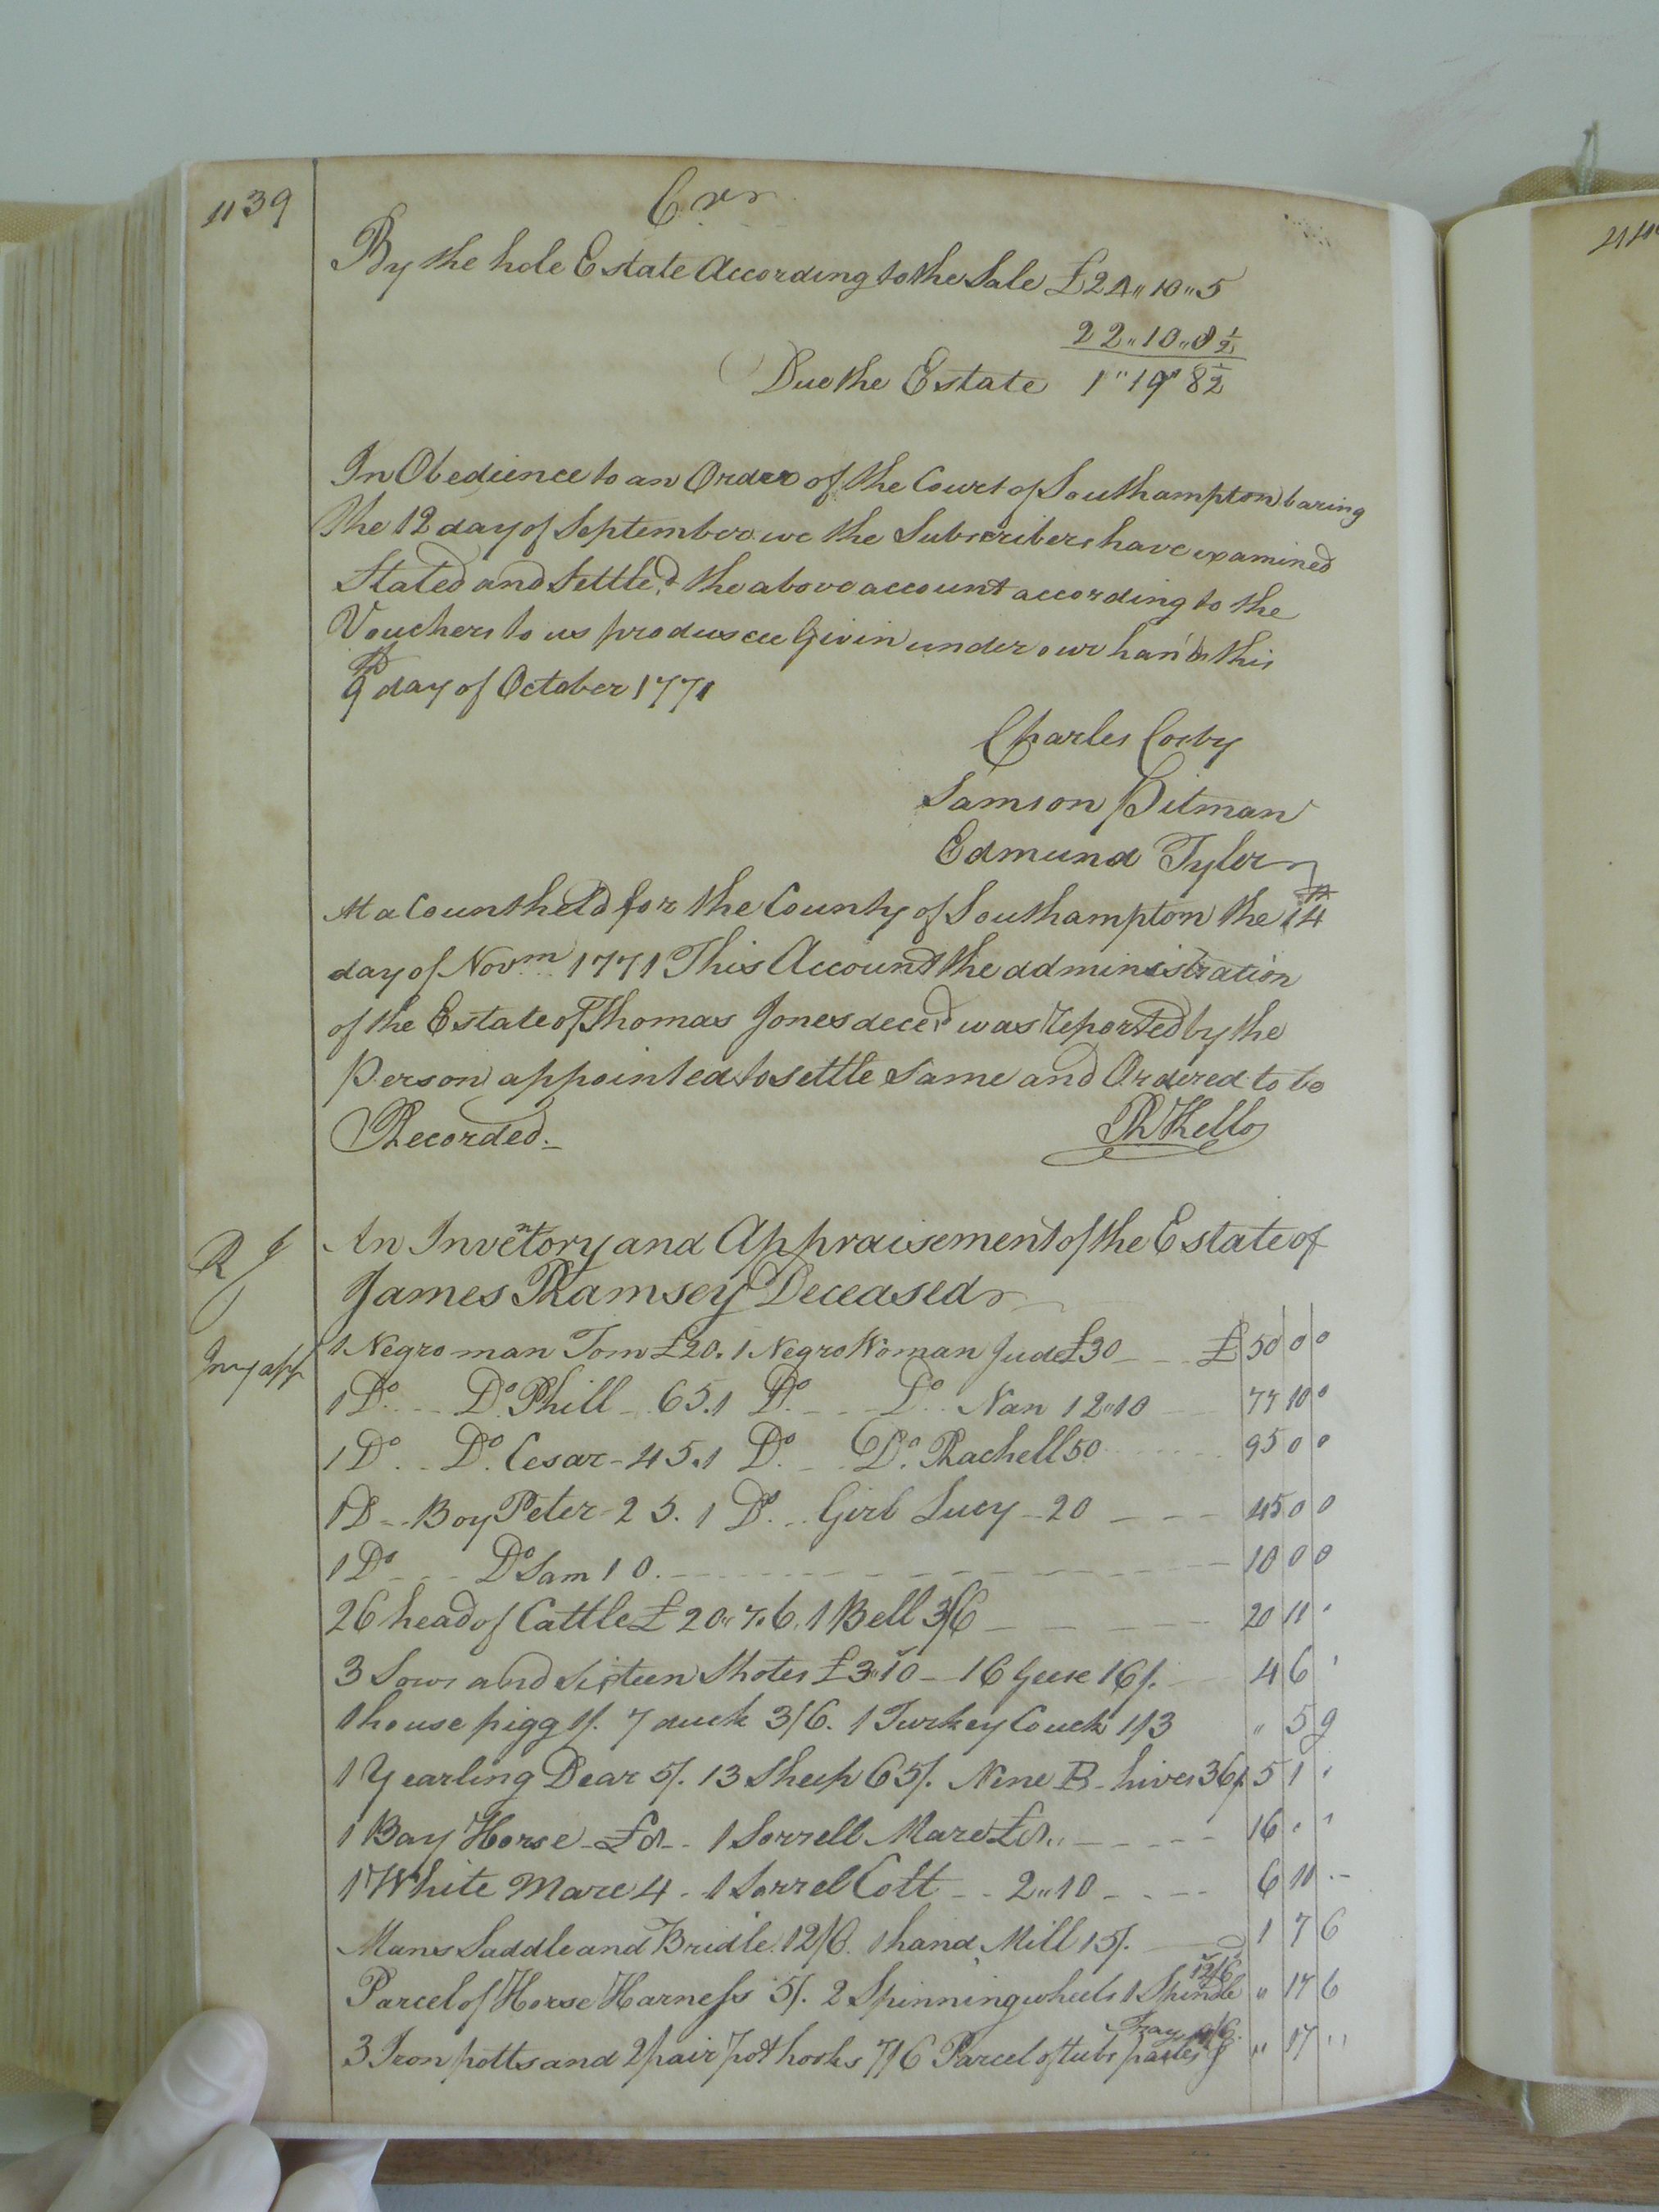 1139
Crr
By the hole Estate According to the Sale £24"10"5
22"10"8½
Due the Estate 1"19"8½
In Obedience to an Order of the Court of Southampton baring
the 12 day of September we the Subscribers have examined
Stated and Settled the above account according to the
Vouchers to us produs Givin under our hands this
9th day of October 1771
Charles Cosby
Samson Pitman
Edmund Tyler
At a Court held for the County of Southampton the 14th
day of Novm 1771 This Account the administration
of the Estate of Thomas Jones deced was reported by the
Person appointed to settle Same and Ordered to be
Recorded.
R Kello
An Inventory and Appraisement of the Estate of
R J
James Ramsey Deceased
Invy app
1 Negro man Tom £20. 1 Negro Woman Jude £30 £ 50 0 0
1 Do. Do. Phill 65. 1 Do. Do. Nan 12"10 77 10 0
1 Do. Do. Cesar - 45. 1 Do. Do. Rachell 50 95 0 0
1 D Boy Peter - 25. 1 Do. Girl Lucy - 20 45 0 0
1 Do Do Sam 10. 10 0 0
26 head of Cattle £20"7"6. 1 Bell 3/6 20 11 "
3 Sows and Sixteen Shotes £3"10 - 16 Geese 16/. 4 6 "
1 house pigg 1/. 7 duck 3/6. 1 Turkey Couck 1/3 " 5 9
1 Yearling Dear 5/. 13 Sheep 65/. Nine B-hives 36/. 5 1 "
1 Bay Horse - £8 - 1 Sorrell Mare £8" 16 " "
1 White Mare 4 - 1 Sorrel Colt - 2"10 6 10 "
Mans Saddle and Bridle 12/6. 1 hand Mill 15/. 1 7 6
Parcel of Horse Harness 5/. 2 Spinning wheels 1 Spindle 12/6 " 17 6
3 Iron potts and 2 pair Pot hooks 7/6 Parcel of tubs pailes & Tray 9/6. " 17 "